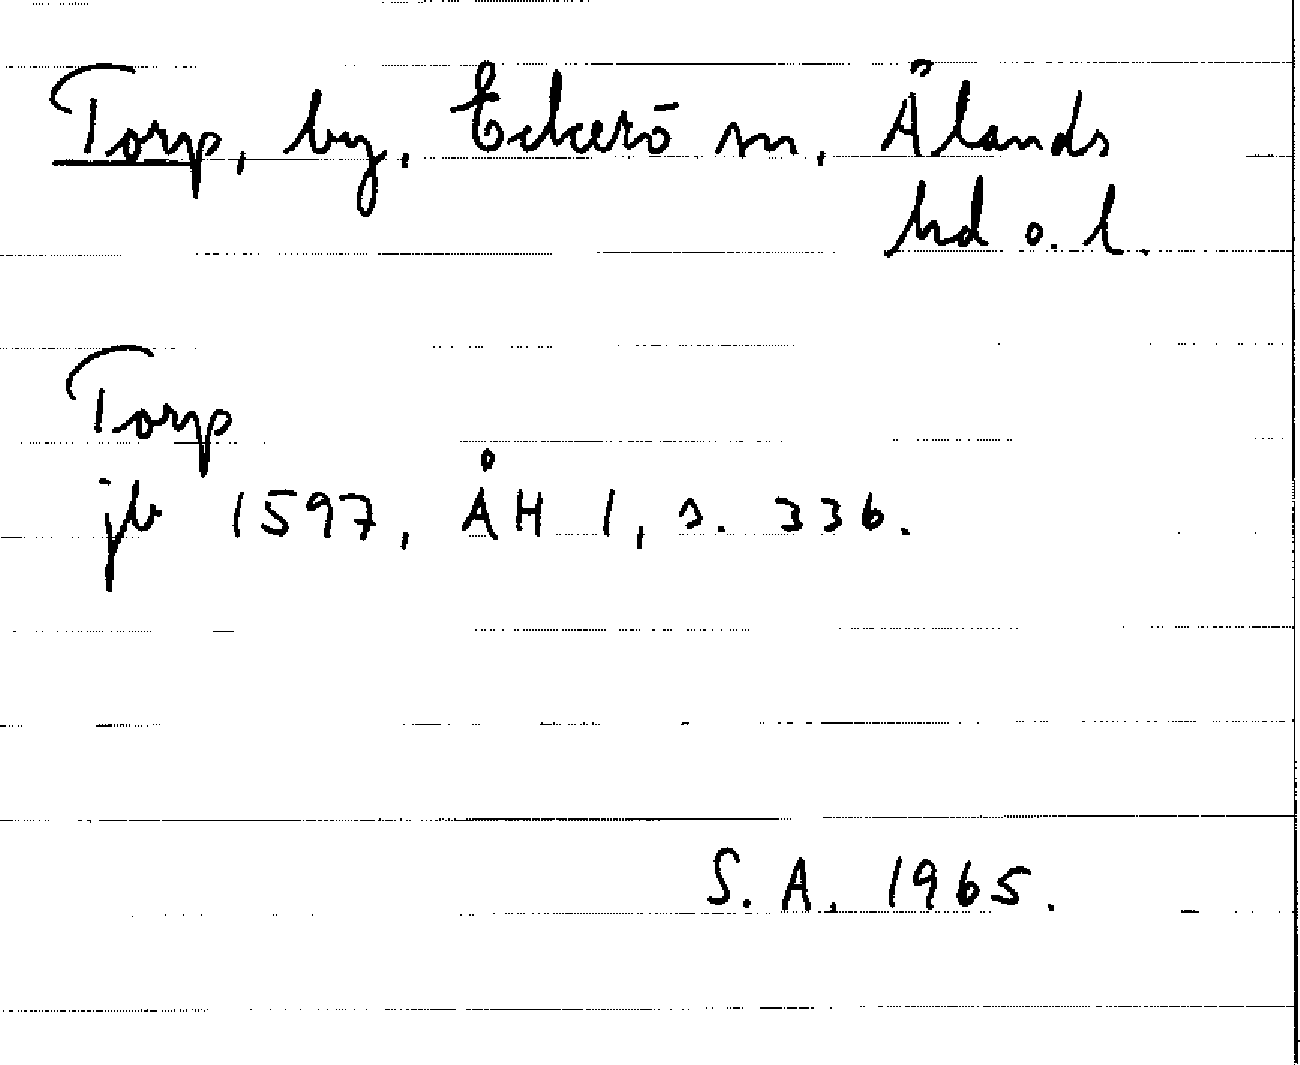 Torp, by, Eckerö sn, Ålands
hd o. l.
Torp
jb 1597, ÅH 1, s. 336.
S. A. 1965.